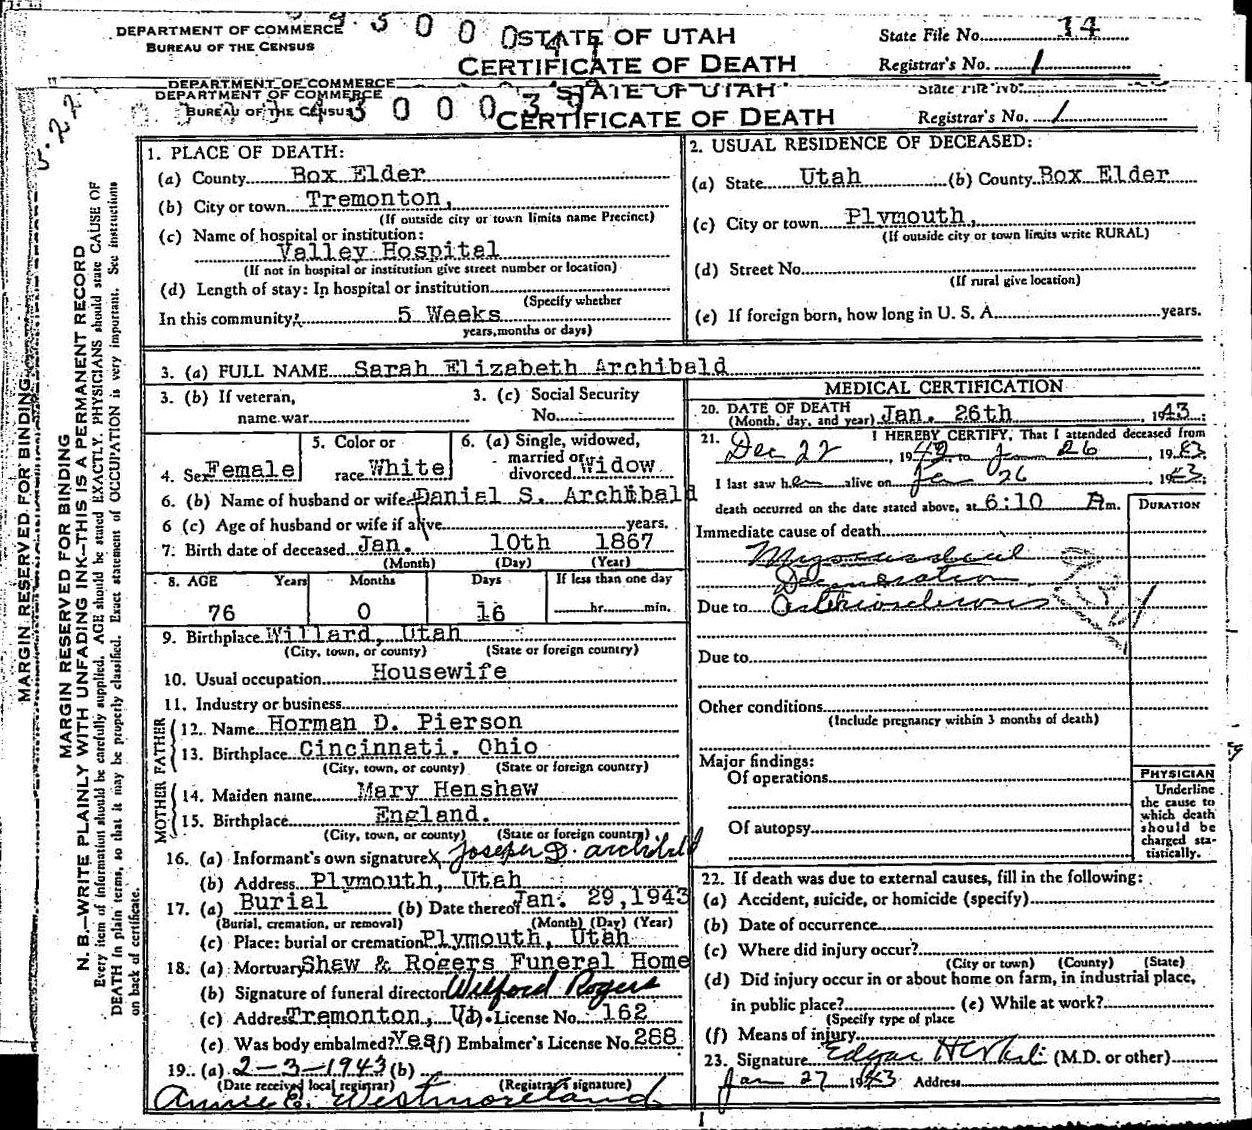 DEPARTMENT OF COMMERCE
BUREAU OF THE CENSUS
STATE OF UTAH
CERTIFICATE OF DEATH
State File No. 14
Registrar's No. 1
DEPARTMENT OF COMMERCE
DEPARTMENT OF COMMERCE
BUREAU OF THE CENSUS
STATE OF UTAH
CERTIFICATE OF DEATH
State File No.
Registrar's No. 1
MARGIN RESERVED FOR BINDING
MARGIN RESERVED FOR BINDING
N. B.—WRITE PLAINLY WITH UNFADING INK—THIS IS A PERMANENT RECORD
Every item of information should be carefully supplied. AGE should be stated EXACTLY. PHYSICIANS should state CAUSE OF
DEATH in plain terms, so that it may be properly classified. Exact statement of OCCUPATION is very important. See instructions
on back of certificate.
1. PLACE OF DEATH:
(a) County Box Elder
(b) City or town Tremonton,
(If outside city or town limits name Precinct)
(c) Name of hospital or institution:
Valley Hospital
(If not in hospital or institution give street number or location)
(d) Length of stay: In hospital or institution
(Specify whether
In this community: 5 Weeks
years, months or days)
2. USUAL RESIDENCE OF DECEASED:
(a) State Utah (b) County Box Elder
(c) City or town Plymouth,
(If outside city or town limits write RURAL)
(d) Street No.
(If rural give location)
(e) If foreign born, how long in U. S. A. years.
3. (a) FULL NAME Sarah Elizabeth Archibald
3. (b) If veteran, name war
3. (c) Social Security No.
4. Sex Female
5. Color or race White
6. (a) Single, widowed, married or divorced Widow
6. (b) Name of husband or wife Danial S. Archibald
6 (c) Age of husband or wife if alive years.
7. Birth date of deceased Jan. 10th 1867
(Month) (Day) (Year)
8. AGE Years Months Days If less than one day
76 0 16 hr. min.
9. Birthplace Willard, Utah
(City, town, or county) (State or foreign country)
10. Usual occupation Housewife
11. Industry or business
FATHER
12. Name Horman D. Pierson
13. Birthplace Cincinnati. Ohio
(City, town, or county) (State or foreign country)
MOTHER
14. Maiden name Mary Henshaw
15. Birthplace England.
(City, town, or county) (State or foreign country)
16. (a) Informant's own signature X Joseph D. Archibald
(b) Address Plymouth, Utah
17. (a) Burial (b) Date thereof Jan. 29, 1943
(Burial, cremation, or removal) (Month) (Day) (Year)
(c) Place: burial or cremation Plymouth, Utah
18. (a) Mortuary Shaw & Rogers Funeral Home
(b) Signature of funeral director Wilford Rogers
(c) Address Tremonton, Ut. (d) License No. 162
(e) Was body embalmed? Yes (f) Embalmer's License No. 288
19. (a) 2-3-1943 (b)
(Date received local registrar) (Registrar's signature)
Annie E. Westmoreland
MEDICAL CERTIFICATION
20. DATE OF DEATH
(Month, day, and year) Jan. 26th, 1943.
21. I HEREBY CERTIFY, That I attended deceased from
Dec 22, 1942 to Jan 26, 1943.
I last saw her alive on Jan 26, 1943.
death occurred on the date stated above, at 6:10 A m.
DURATION
Immediate cause of death
Myocardial
Degeneration
Due to Arteriosclerosis
Due to
Other conditions
(Include pregnancy within 3 months of death)
Major findings:
Of operations
Of autopsy
PHYSICIAN
Underline
the cause to
which death
should be
charged sta-
tistically.
22. If death was due to external causes, fill in the following:
(a) Accident, suicide, or homicide (specify)
(b) Date of occurrence
(c) Where did injury occur?
(City or town) (County) (State)
(d) Did injury occur in or about home on farm, in industrial place,
in public place? (e) While at work?
(Specify type of place
(f) Means of injury
23. Signature Edgar (M.D. or other)
Jan 27 1943 Address